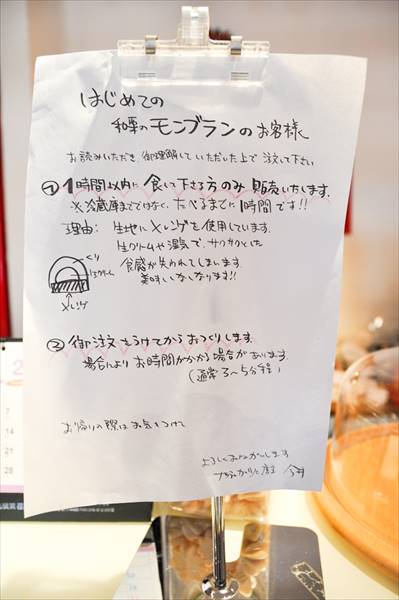 はじめての
和栗のモンブランのお客様
お読みいただき御理解していただいた上で注文して下さい
① 1時間以内に食べて下さる方のみ販売いたします。
※冷蔵庫までではなく、たべるまでに1時間です!!
理由: 生地にメレンゲを使用しています。
生クリームや湿気で、サクサクといた
食感が失われてしまいます。
美味しくなくなります!!
くり
生クリーム
メレンゲ
② 御注文をうけてからおつくりします。
場合によりお時間がかかる場合があります。
(通常3〜5分程)
お帰りの際はお気をつけて
よろしくおねがいします
店主 今井
2
7
14
21
28